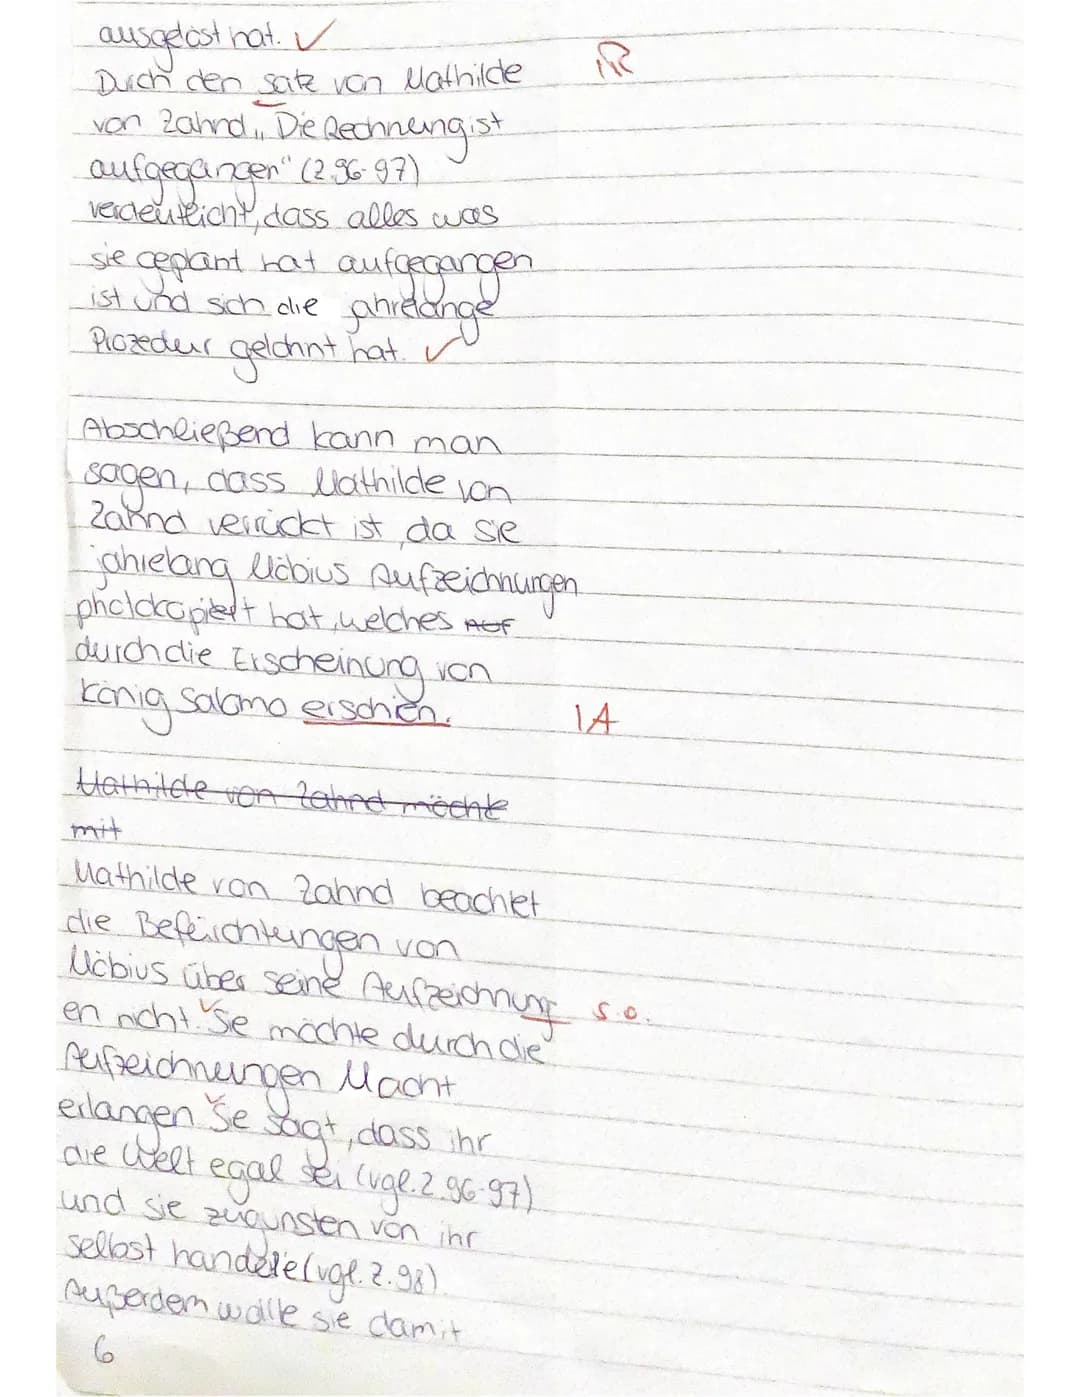 ausgelöst hat. ✓
Durch den satz von Mathilde R
von Zahnd „Die Rechnung ist
aufgegangen" (Z.96-97)
verdeutlicht, dass alles was
sie geplant hat aufgegangen
ist und sich die jahrelange
Prozedur gelohnt hat. ✓
Abschließend kann man
sagen, dass Mathilde von
Zahnd verrückt ist, da sie
jahrelang Möbius Aufzeichnungen
photokopiert hat, welches Auf
durch die Erscheinung von
könig Salomo erschien. A
Mathilde von Zahnd möchte
mit
Mathilde von Zahnd beachtet
die Befürchtungen von
Möbius über seine Aufzeichnung s.o.
en nicht. Sie möchte durch die
Aufzeichnungen Macht
erlangen Sie sagt, dass ihr
die Welt egal sei (vgl. Z. 96-97)
und sie zugunsten von ihr
selbst handele (vgl. Z. 98).
Außerdem wolle sie damit
6